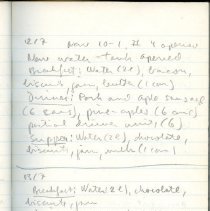 12/7 Nos 10-1, 7 & 4 opened
New water tank opened
Breakfast: Water (2l), bacon,
biscuits, jam, butter (1 can)
Dinner: Pork and aple sausage
(6 bars), pine-aples (6 and
partial dinner unit (6)
Supper: Water (2l), chocolate,
biscuits, jam, milk (1 can)
13/7
Breakfast: Water (2l), chocolate,
biscuits, jam